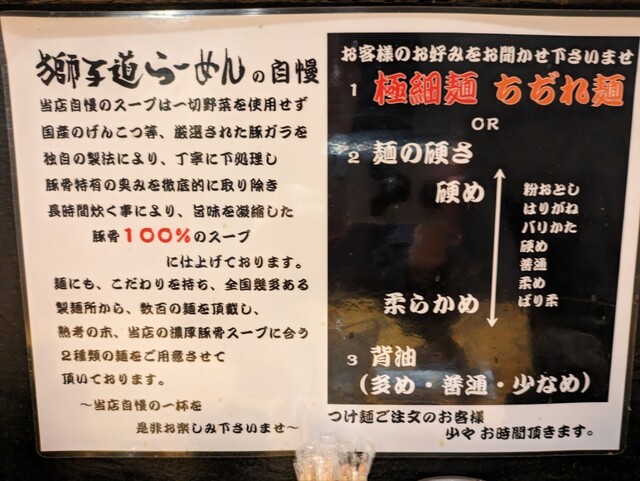 獅子道らーめんの自慢
当店自慢のスープは一切野菜を使用せず
国産のげんこつ等、厳選された豚ガラを
独自の製法により、丁寧に下処理し
豚骨特有の臭みを徹底的に取り除き
長時間炊く事により、旨味を凝縮した
豚骨100%のスープ
に仕上げております。
麺にも、こだわりを持ち、全国幾多ある
製麺所から、数百の麺を頂戴し、
熟考の末、当店の濃厚豚骨スープに合う
2種類の麺をご用意させて
頂いております。
～当店自慢の一杯を
是非お楽しみ下さいませ～
お客様のお好みをお聞かせ下さいませ
1 極細麺 ちぢれ麺
OR
2 麺の硬さ
硬め
粉おとし
はりがね
バリかた
硬め
普通
柔め
ばり柔
柔らかめ
3 背油
（多め・普通・少なめ）
つけ麺ご注文のお客様
少々お時間頂きます。